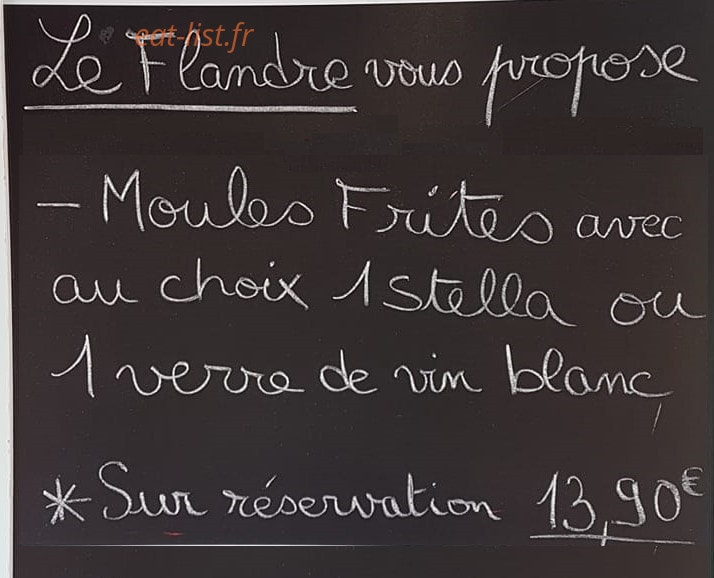 eat-list.fr
Le Flandre vous propose
- Moules Frites avec
au choix 1 Stella ou
1 verre de vin blanc,
* Sur réservation 13,90€